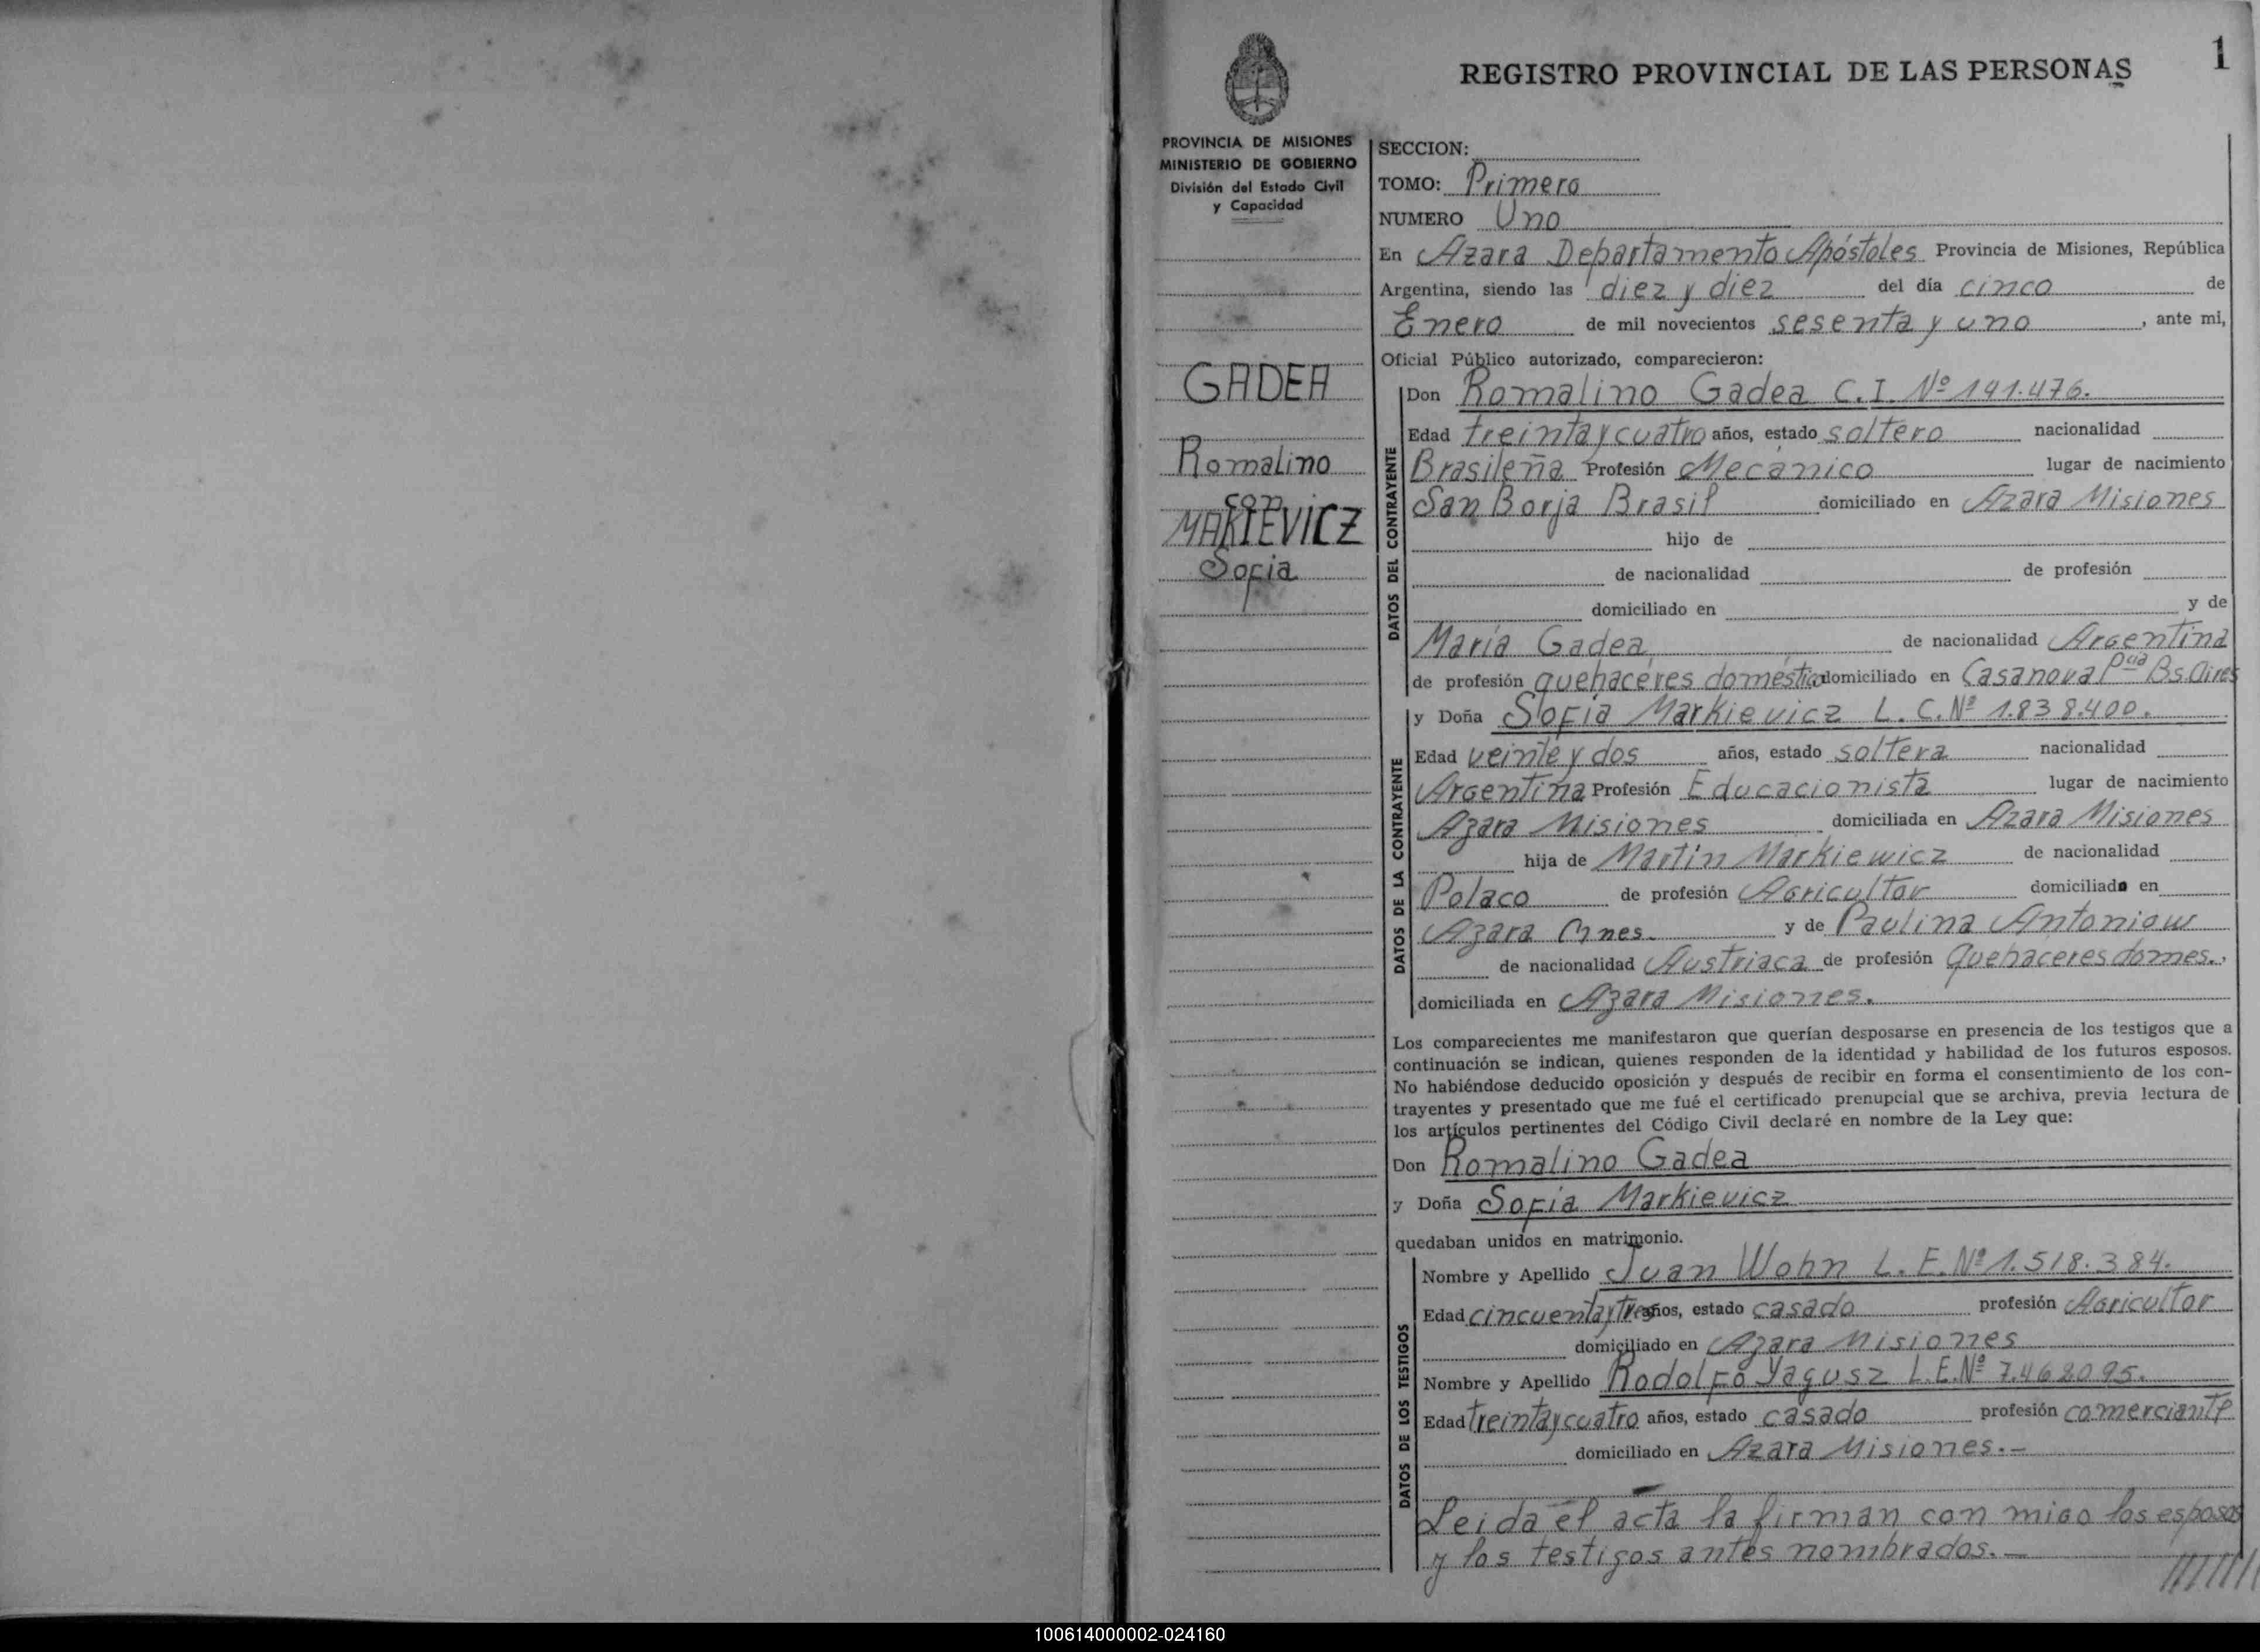 1
REGISTRO PROVINCIAL DE LAS PERSONAS
PROVINCIA DE MISIONES
MINISTERIO DE GOBIERNO
División del Estado Civil
y Capacidad
GADEA
Romalino
con
MAKIEVICZ
Sofia
SECCION:
TOMO: Primero
NUMERO Uno
En Azara Departamento Apóstoles Provincia de Misiones, República
Argentina, siendo las diez y diez del día cinco de
Enero de mil novecientos sesenta y uno, ante mi,
Oficial Público autorizado, comparecieron:
DATOS DEL CONTRAYENTE
Don Romalino Gadea C.I. Nº 141.476.
Edad treinta y cuatro años, estado soltero nacionalidad
Brasileña Profesión Mecánico lugar de nacimiento
San Borja Brasil domiciliado en Azara Misiones
hijo de
de nacionalidad de profesión
domiciliado en y de
María Gadea de nacionalidad Argentina
de profesión quehaceres doméstico domiciliado en Casanova Pcia Bs. Aires
DATOS DE LA CONTRAYENTE
y Doña Sofia Markievicz L. C. Nº 1.838.400.
Edad veinte y dos años, estado soltera nacionalidad
Argentina Profesión Educacionista lugar de nacimiento
Azara Misiones domiciliada en Azara Misiones
hija de Martin Markiewicz de nacionalidad
Polaco de profesión Agricultor domiciliado en
Azara Mnes. y de Paulina Antoniow
de nacionalidad Austriaca de profesión Quehaceres domes.
domiciliada en Azara Misiones.
Los comparecientes me manifestaron que querían desposarse en presencia de los testigos que a
continuación se indican, quienes responden de la identidad y habilidad de los futuros esposos.
No habiéndose deducido oposición y después de recibir en forma el consentimiento de los con-
trayentes y presentado que me fué el certificado prenupcial que se archiva, previa lectura de
los artículos pertinentes del Código Civil declaré en nombre de la Ley que:
Don Romalino Gadea
y Doña Sofia Markievicz
quedaban unidos en matrimonio.
DATOS DE LOS TESTIGOS
Nombre y Apellido Juan Wohn L. E. Nº 1.518.384.
Edad cincuenta y tres años, estado casado profesión Agricultor
domiciliado en Azara Misiones
Nombre y Apellido Rodolfo Yagusz L.E. Nº 7.462095.
Edad treinta y cuatro años, estado casado profesión comerciante
domiciliado en Azara Misiones.-
Leida el acta la firman con migo los esposos
y los testigos antes nombrados.-
100614000002-024160